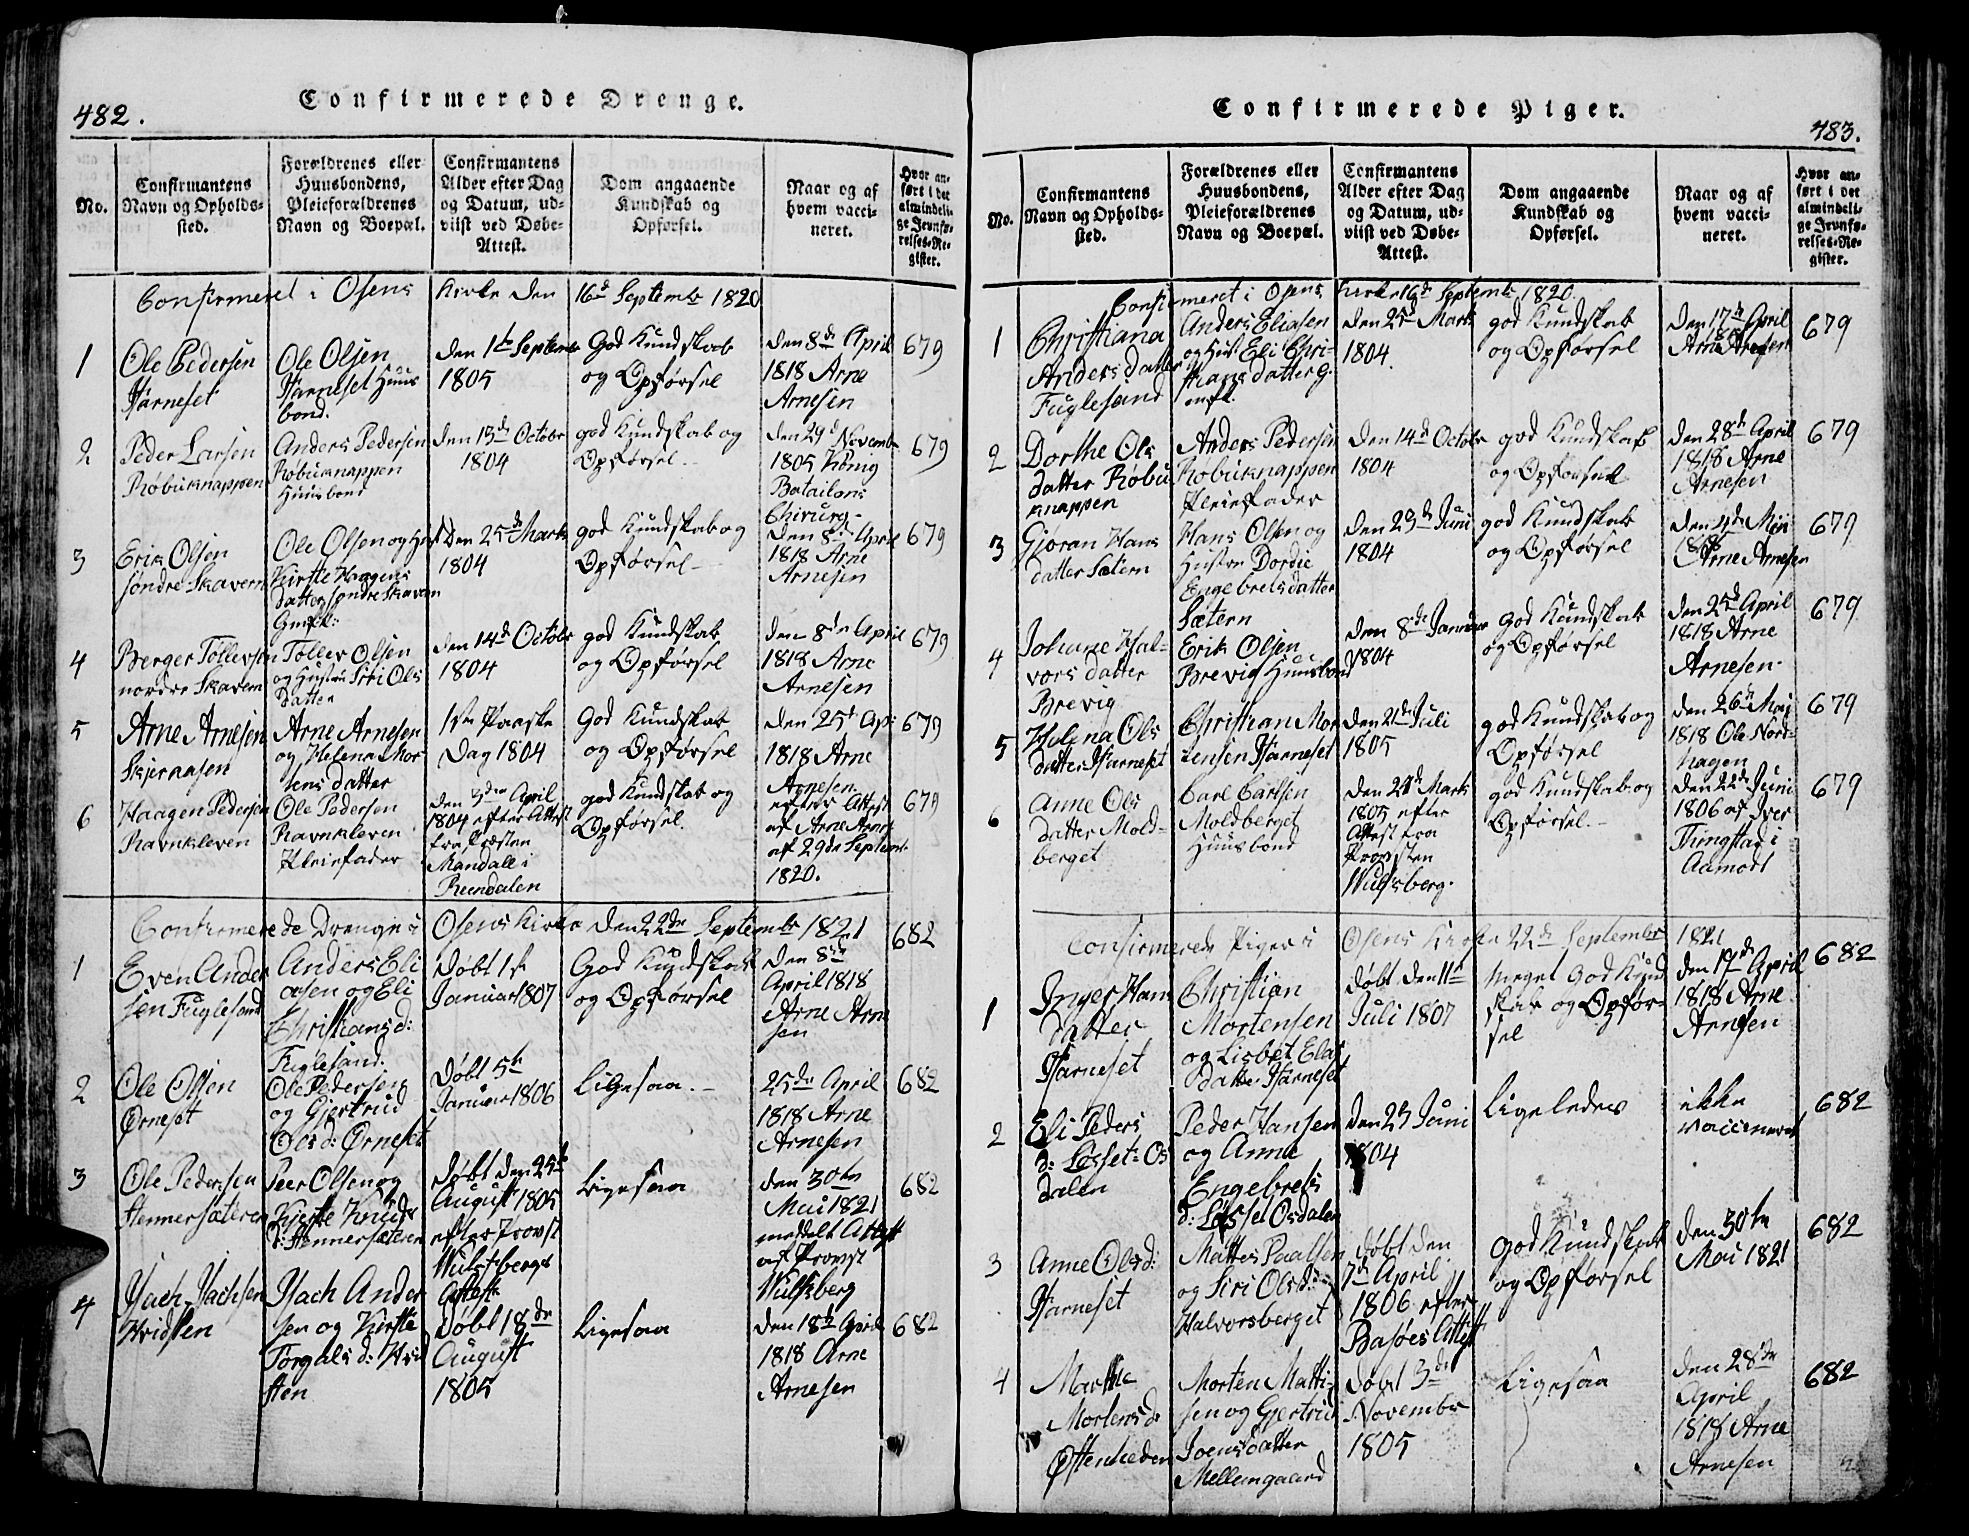 482.
Confirmerede Drenge.
No.
Confirmantens
Navn og Opholds-
sted.
Forældrenes eller
Huusbondens,
Pleieforældrenes
Navn og Boepæl.
Confirmantens
Alder efter Dag
og Datum, ud-
viist ved Døbe-
Attest.
Dom angaaende
Kundskab og
Opførsel.
Naar og af
hvem vacci-
neret.
Hvor an-
ført i det
almindeli-
ge Jevnfø-
relses-Re-
gister.
Confirmeret i Osens Kirke den 16d Septembr 1820
1
Ole Pedersen
Ole Olsen
Huus
bond.
den 1te Septembr
1805
God Kundskab
og Opførsel
den 8de April
1818 Arne
Arnesen
679
2
Peder Larsen
Røbuknappen
Anders Pedersen
Røbuknappen
Huusbond
den 13de Octobr
1804
god Kundskab og
Opførsel.-
den 29d Novembr
1805 König
Batailons
Chirurg.
679
3
Erik Olsen
søndre Skavern
Ole Olsen og
Kirste Haagens
datter søndre Skavern
Gmfk:
Den 25de Marts
1804
god Kundskab og
Opførsel-
den 8de April
1818 Arne
Arnesen
679
4
Berger Tollevsen
nordre Skavern
Tollev Olsen
og Hustru Siri Ols
datter
den 14d Octobr
1804
god Kundskab
og Opførsel
den 8de April
1818 Arne
Arnesen
679
5
Arne Arnesen
Skjernaasen
Arne Arnesen
og Helena Mor
tens datter
1ste Paaske
Dag 1804
God Kundskab
og Opførsel
den 25d Apr
1818 Arne
Arnesen
679
6
Haagen Pedersen
Ravnkleven
Ole Pedersen
Ravnkleven
Pleiefader
den 3den April
1804 efter Attest
fra Præsten
Mandall i
Rendalen
god Kundskab og
Opførsel.
efter Attest
af Arne Arnes
af 29de Septembr
1820.
679
Confirmerede Drenge i Osens Kirke den 22de Septembr 1821
1
Even Ander
sen Fuglesand
Anders Eli
asen og Eli
Christians d:
Fuglesand.
Døbt 1st
Januar 1807
God Kundskab
og Opførsel
den 8de
April 1818
Arne Arne
sen
682
2
Ole Olsen
Ørneset
Ole Pedersen
og Gjertrud
Ols d: Ørneset
Døbt 5te
Januar 1806
Ligesaa.-
25de April
1818 Arne
Arnesen
682
3
Ole Pedersen
Hennersæteren
Peer Olsen og
Kirste Knuds
d: Hennersæteren
Døbt den 25te
August 1805
efter Provst
Wulfsbergs
Attest
Ligesaa
den 30te
Mai 1821
meddelt Attest
af Provst
Wulfsberg
682
4
Isach Isachsen
Hvidsten
Isach Ander
sen og Kirste
Torgals d: Hvid
sten
Døbt 18de
August
1805
Ligesaa
den 18de April
1818 Arne
Arnesen
682
Confirmerede Piger.
483.
No.
Confirmantens
Navn og Opholds-
sted.
Forældrenes eller
Huusbondens,
Pleieforældrenes
Navn og Boepæl.
Confirmantens
Alder efter Dag
og Datum, ud-
viist ved Døbe-
Attest.
Dom angaaende
Kundskab og
Opførsel.
Naar og af
hvem vacci-
neret.
Hvor an-
ført i det
almindeli-
ge Jevnfø-
relses-Re-
gister.
Confirmeret i Osens Kirke 16de Septembr 1820.
1
Christiana
Anders datter
Fuglesand
Anders Eliasen
og Hust. Eli Chri-
stians datter G.
mfk.
den 25d Marts
1804.
god Kundskab
og Opførsel
den 17de April
Arne Arnesen
679
2
Dorthe Ols
datter Røbu
knappen
Anders Pedersen
Røbuknappen
Pleiefader
Den 14d Octobr
1804
god Kundskab
og Opførsel
den 28de April
1818 Arne
Arnesen
679
3
Gjoran Hans
datter Sætern
Hans Olsen og
Hustru Dordie
Engebretsdatter
Sætern
Den 23de Juni
1804
god Kundskab
og Opførsel
den 4de Mai
1818
Arne Arnesen
679
4
Johane Hal-
vors datter
Brevig
Erik Olsen
Brevig Huusbond
den 8de Januar
1804
god Kundskab
og Opførsel
den 25d April
1818 Arne
Arnesen.
679
5
Helena Ols
datter
Christian Mor
tensen
den 21de Juli
1805
god Kundskab og
Opførsel
den 26de Mai
1818 Ole Nord-
hagen
679
6
Anne Ols
datter Mold-
berget
Carl Carlsen
Moldberget
Huusbond
den 21de Marts
1805 efter
Attest fra
Provsten
Wulfsberg.
god Kundskab og
Opførsel.-
den 22de Juni
1806 af Iver
Tingstad i
Aamodt
679
Confirmerede Piger i Osens Kirke 22de Septembr 1821
1
Inger Hans
datter
Christian
Mortensen
og Lisbet Elas
datter
døbt den 11te
Juli 1807
meget God Kund
skab og Opfør-
sel
den 17de April
1818 Arne
Arnesen
682
2
Eli Peders
d: Løsset: Os
dalen
Peder Hansen
og Anne
Engebrets
d: Løsset Osdalen
den 23 Juni
1804
Ligeledes
ikke
vaccineret
682
3
Anne Olsd:
Mattes Paalsen
og Siri Olsd:
Halvorsberget
døbt den
7de April
1806 efter
Basøes Attest
god Kundskab
og Opførsel
den 30te
Mai 1821
682
4
Marthe
Mortens d:
Østenheden
Morten Matti-
sen og Gjertrud
Joensdatter
Mellemgaard
døbt 3de
November
1805
Ligesaa
den 28de
April
1818 Arne
Arnesen
682